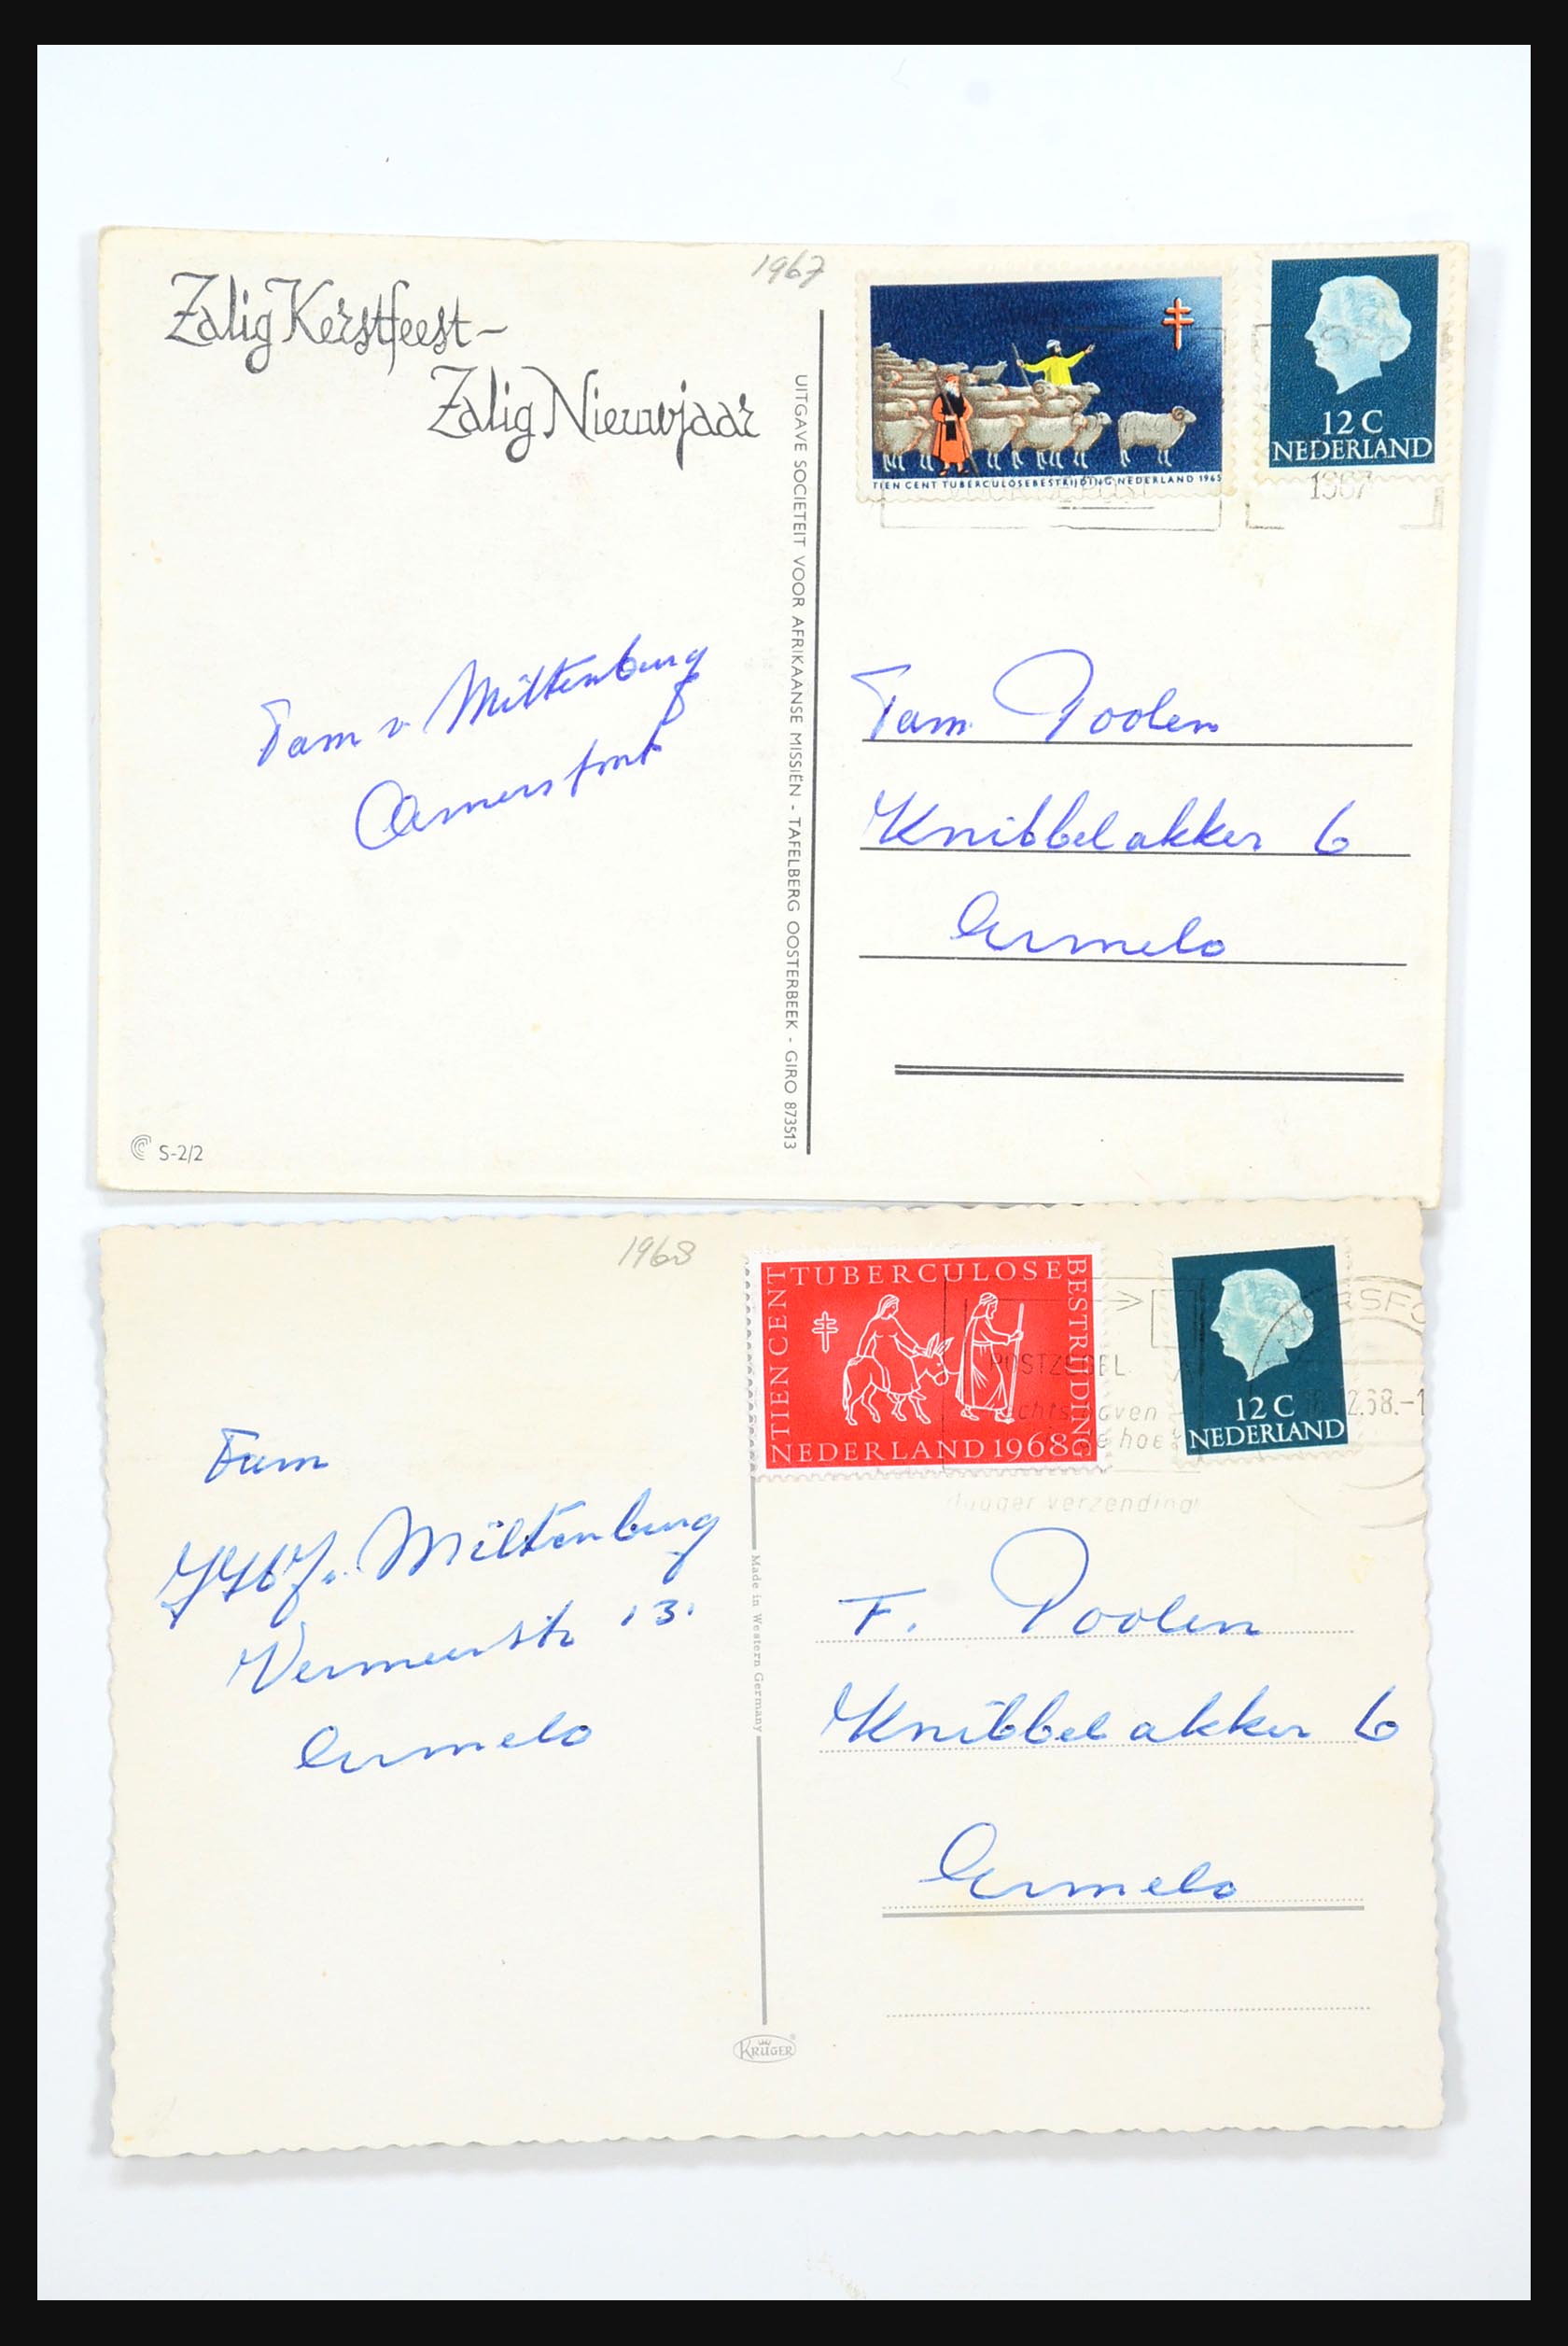 Zalig Kerstfeest-
Zalig Nieuwjaar
1967
TIEN CENT TUBERCULOSEBESTRIJDING NEDERLAND 1965
12 C
NEDERLAND
1967
UITGAVE SOCIETEIT VOOR AFRIKAANSE MISSIËN - TAFELBERG OOSTERBEEK - GIRO 873513
Fam v Miltenburg
Amersfoort
Fam. Poolen
Knibbelakker 6
Ermelo
S-2/2
1968
TIEN CENT TUBERCULOSEBESTRIJDING
NEDERLAND 1968
12 C
NEDERLAND
POSTZEGEL
rechtsboven
hoek
vlugger verzending
12.68.-1
Fam
v. Miltenburg
Vermeerstr 13.
Ermelo
Made in Western Germany
F. Poolen
Knibbelakker 6
Ermelo
KRÜGER